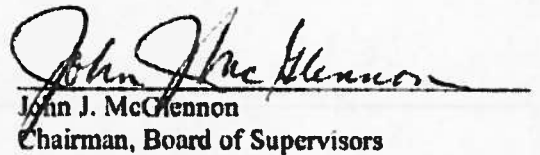 John J McGlennon
John J. McGlennon
Chairman, Board of Supervisors